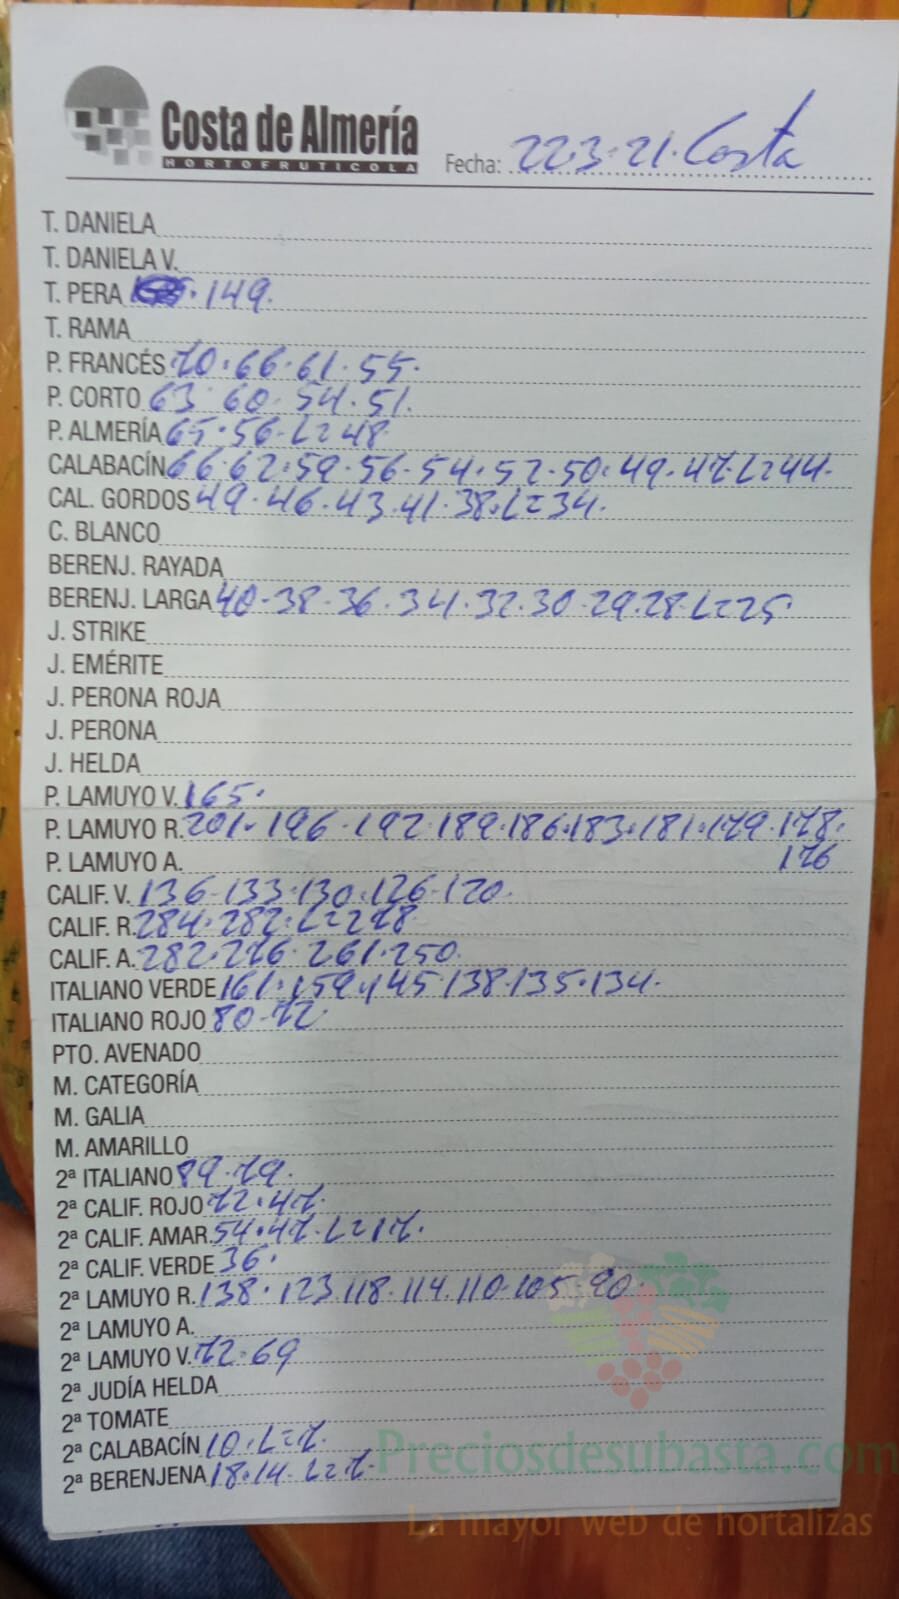 Costa de Almería
HORTOFRUTICOLA
Fecha: 22·3·21·Costa
T. DANIELA
T. DANIELA V.
T. PERA ·149.
T. RAMA
P. FRANCÉS 70·66·61·55.
P. CORTO 63·60·54·51.
P. ALMERÍA 65·56·L=48
CALABACÍN 66·62·59·56·54·52·50·49·47·L=44.
CAL. GORDOS 49·46·43·41·38·L=34.
C. BLANCO
BERENJ. RAYADA
BERENJ. LARGA 40·38·36·34·32·30·29·28·L=25
J. STRIKE
J. EMÉRITE
J. PERONA ROJA
J. PERONA
J. HELDA
P. LAMUYO V. 165·
P. LAMUYO R. 201·196·192·189·186·183·181·179·178·
P. LAMUYO A. 176
CALIF. V. 136·133·130·126·120.
CALIF. R. 284·282·L=278
CALIF. A. 282·276·261·250.
ITALIANO VERDE 161·159·145·138·135·134.
ITALIANO ROJO 80·72
PTO. AVENADO
M. CATEGORÍA
M. GALIA
M. AMARILLO
2ª ITALIANO 89·79.
2ª CALIF. ROJO 72·47.
2ª CALIF. AMAR. 54·47·L=17.
2ª CALIF. VERDE 36·
2ª LAMUYO R. 138·123·118·114·110·105·90
2ª LAMUYO A.
2ª LAMUYO V. 72·69
2ª JUDÍA HELDA
2ª TOMATE
2ª CALABACÍN 10·L=7.
2ª BERENJENA 18·14·L=7.
Preciosdesubasta.com
La mayor web de hortalizas